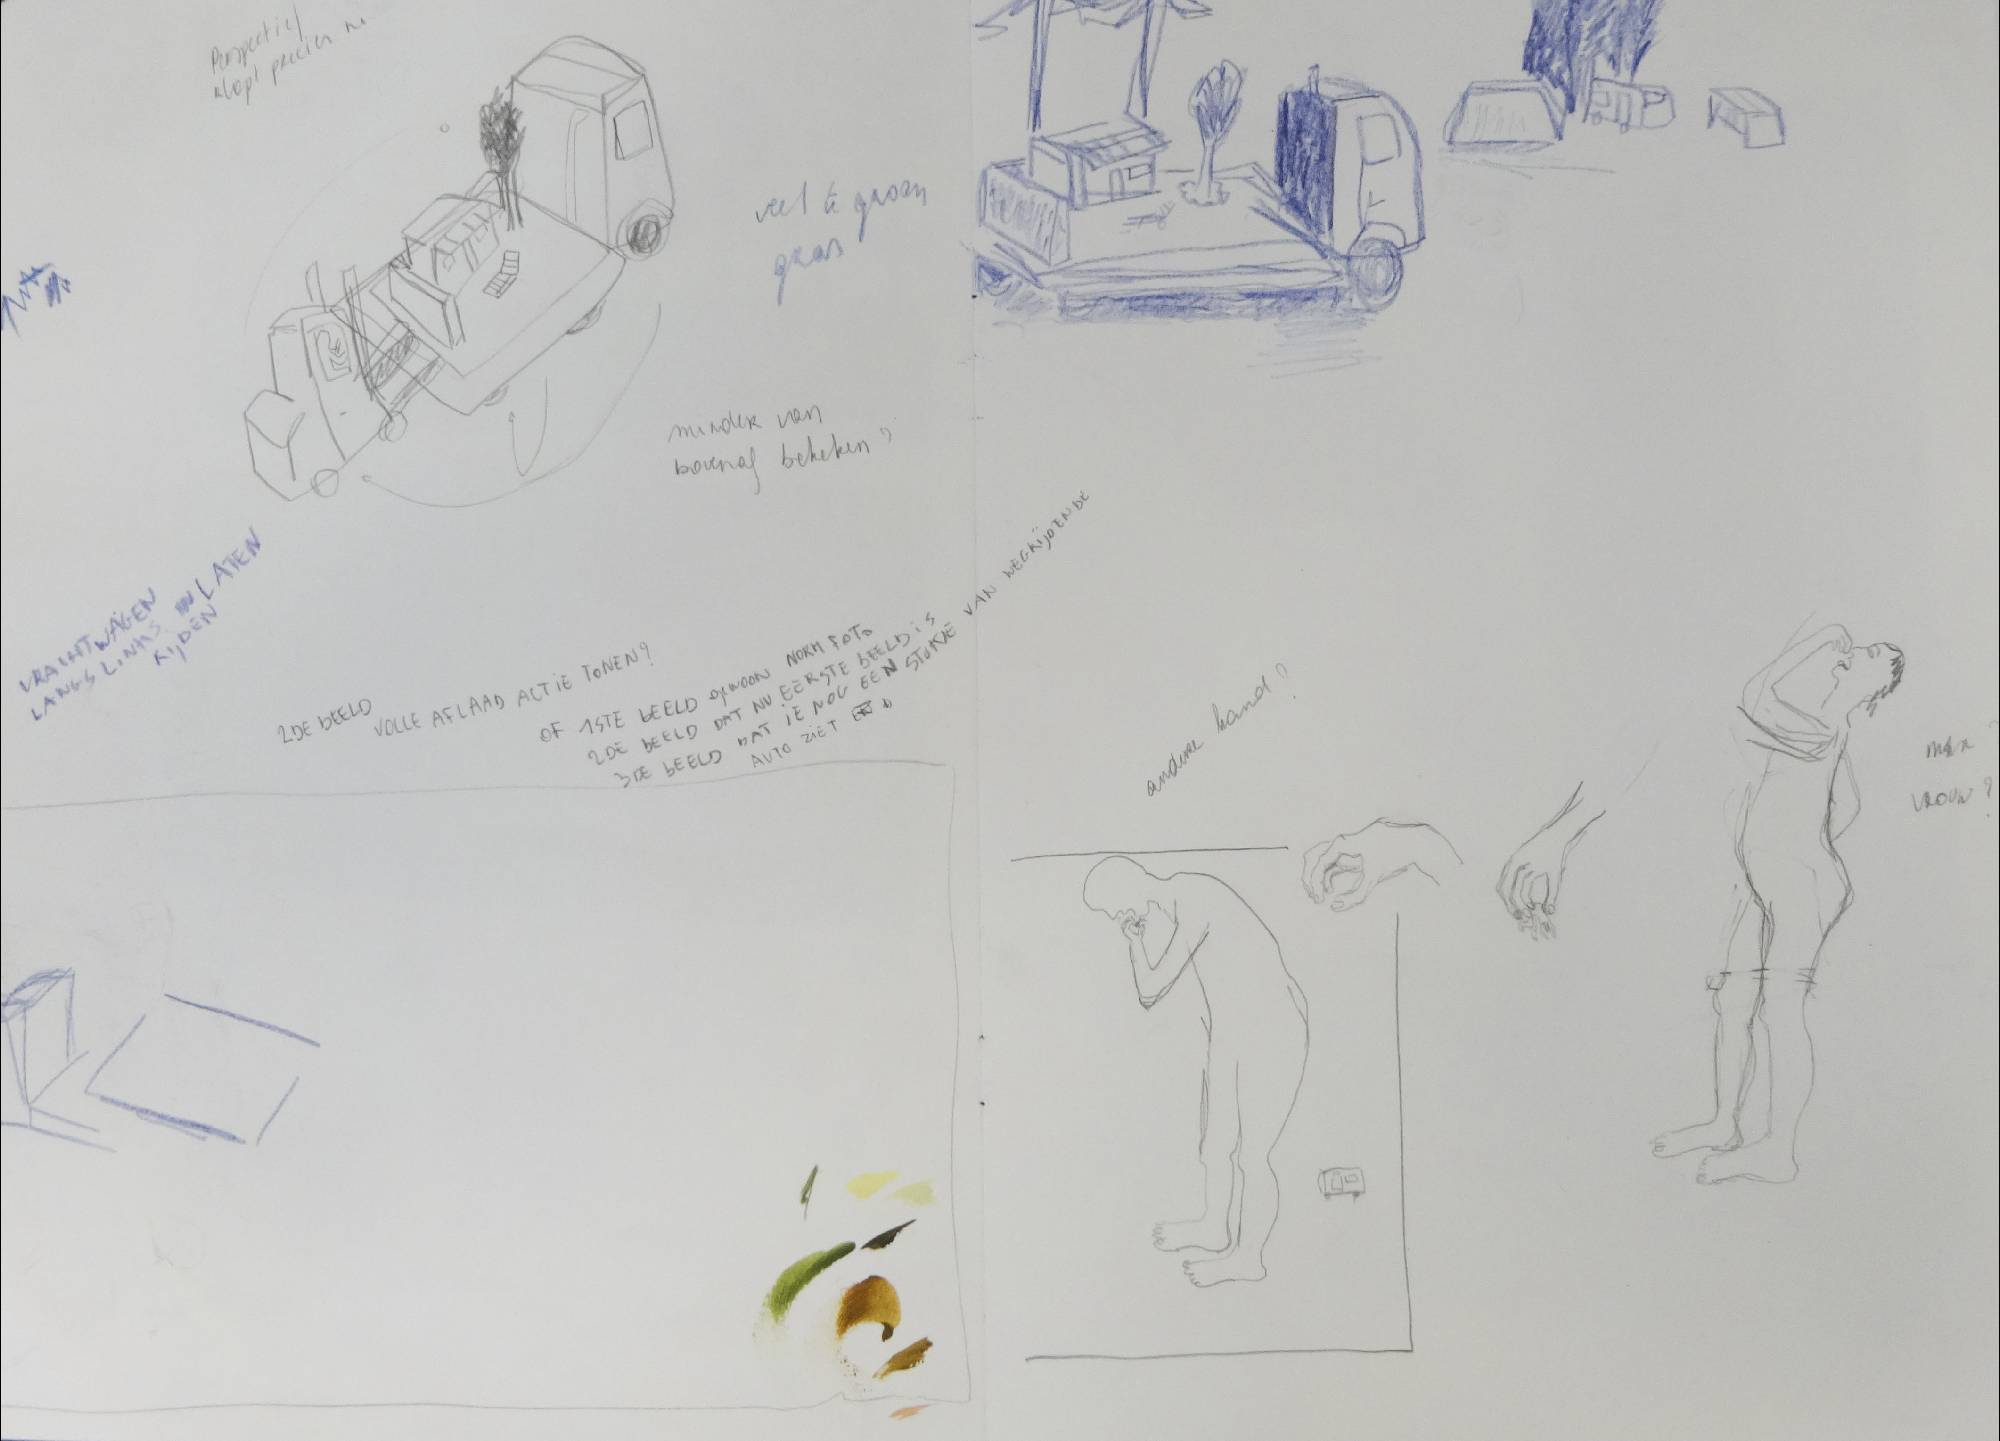 Perspectief
klopt precies ni
veel te groen
gras
minder van
bovenaf bekeken?
VRACHTWAGEN
LANGS LINKS IN LATEN
RIJDEN
2DE BEELD
VOLLE AFLAAD ACTIE TONEN?
OF 1STE BEELD GEWOON NORM FOTO
2DE BEELD DAT NU EERSTE BEELD IS
3DE BEELD DAT JE NOG EEN STUKJE VAN WEGRIJDENDE
AUTO ZIET
andere hand?
vrouw?